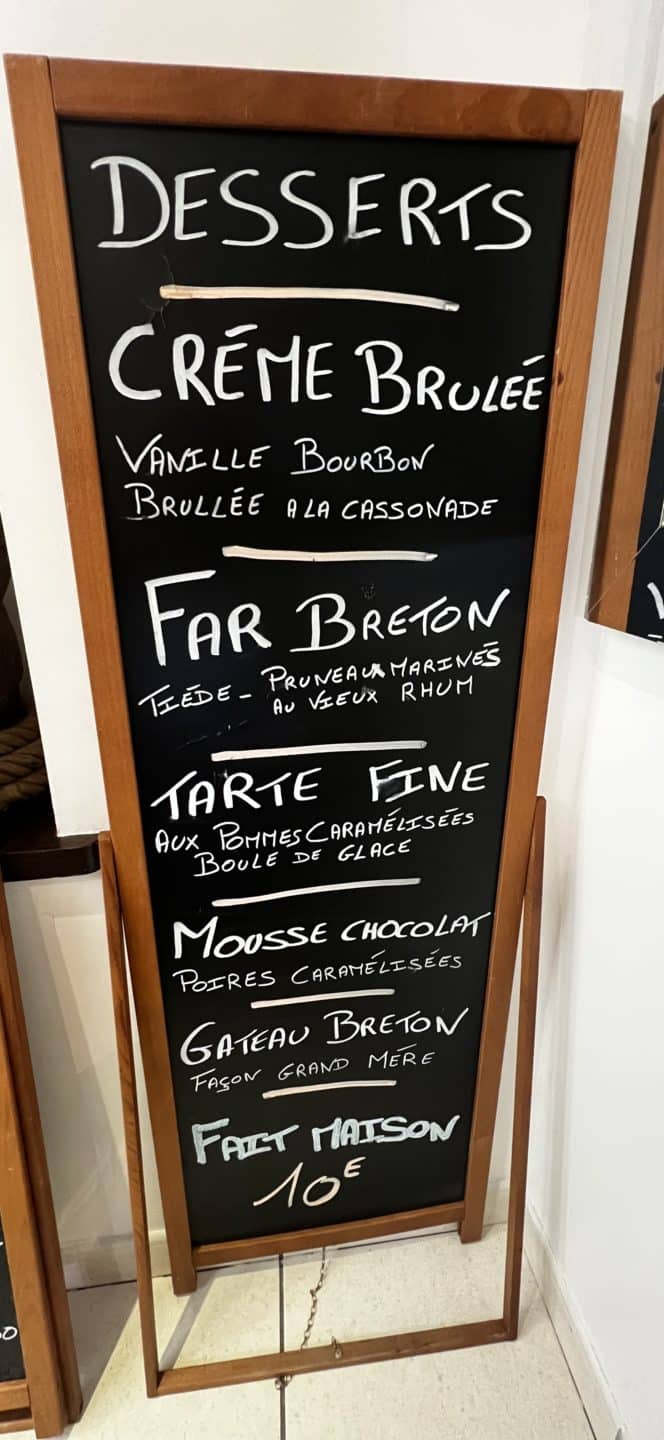 DESSERTS
CRÉME BRULÉE
VANILLE BOURBON
BRULLÉE A LA CASSONADE
FAR BRETON
TIÉDE - PRUNEAUX MARINÉS
AU VIEUX RHUM
TARTE FINE
AUX POMMES CARAMÉLISÉES
BOULE DE GLACE
MOUSSE CHOCOLAT
POIRES CARAMÉLISÉES
GATEAU BRETON
FAÇON GRAND MÉRE
FAIT MAISON
10E